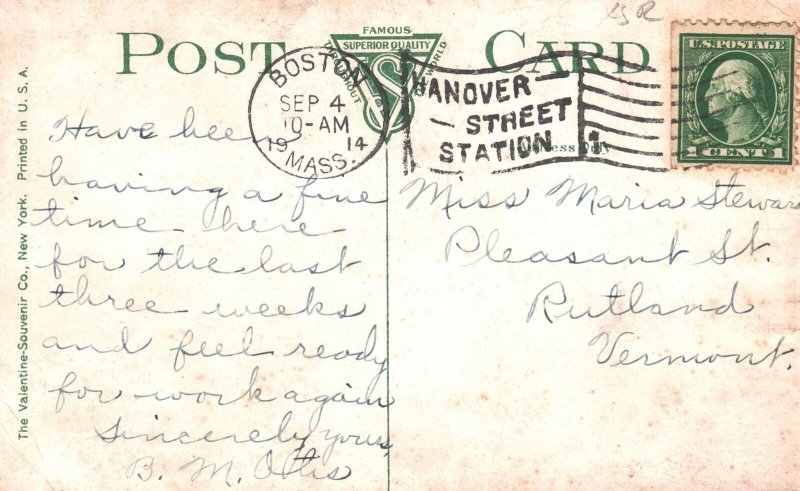 POST CARD
FAMOUS
SUPERIOR QUALITY
THROUGHOUT WORLD
VS
BOSTON
SEP 4
10-AM
1914
MASS.
HANOVER
STREET
STATION
1
U.S. POSTAGE
1 CENT 1
The Valentine-Souvenir Co., New York. Printed in U. S. A.
Have been
having a fine
time here
for the last
three weeks
and feel ready
for work again
Sincerely yours,
B. M. Otis
Miss Maria Stewar
Pleasant St.
Rutland
Vermont.